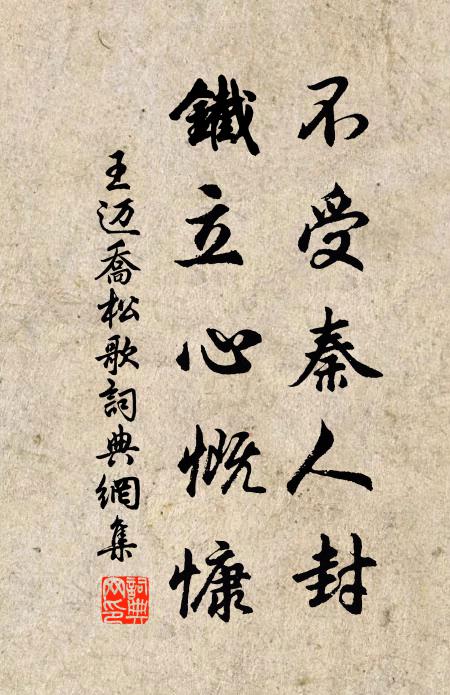 不受秦人封
鐵立心慨慷
王迈喬松歌詞典網集
詞典网印